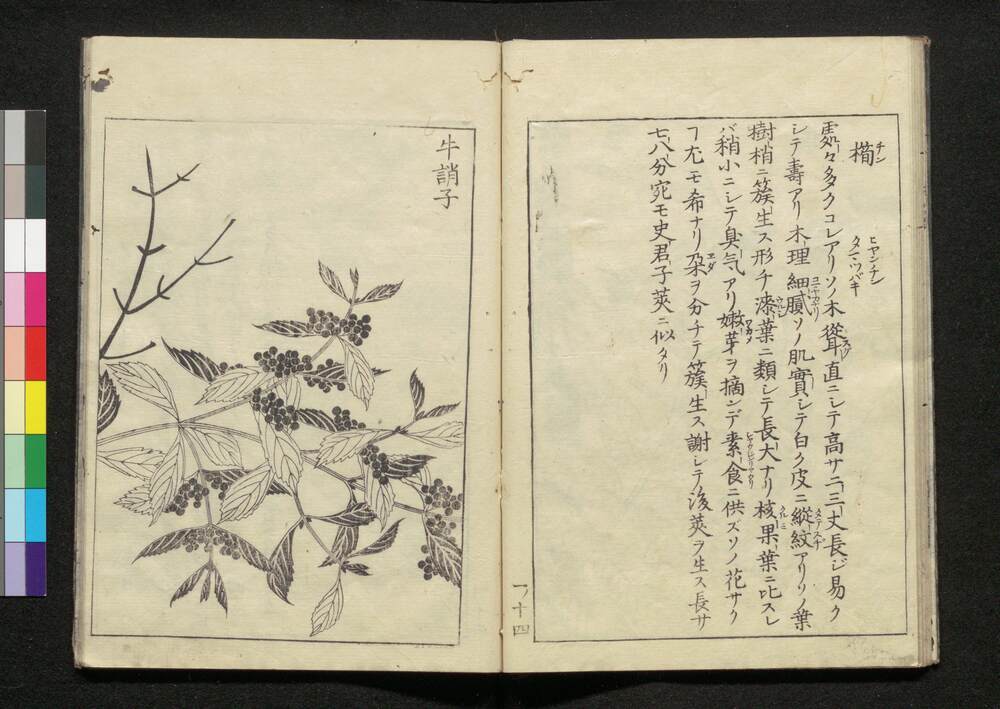 櫕 チン ヒヤンチン タマツバキ
處々多クコレアリソノ木聳直ニシテ高サ二三丈長ジ易ク
シテ壽アリ木理細膩ソノ肌實シテ白ク皮ニ縱紋アリソノ葉
樹梢ニ簇生ス形チ漆葉ニ類シテ長大ナリ核果葉ニ比スレ
バ稍小ニシテ臭気アリ嫩芽ヲ摘ンデ素食ニ供ズソノ花サク
ヿ尤モ希ナリ朶ヲ分チテ簇生ス謝シテ後莢ヲ生ス長サ
七八分宛モ史君子莢ニ似タリ
牛誚子
一ノ十四